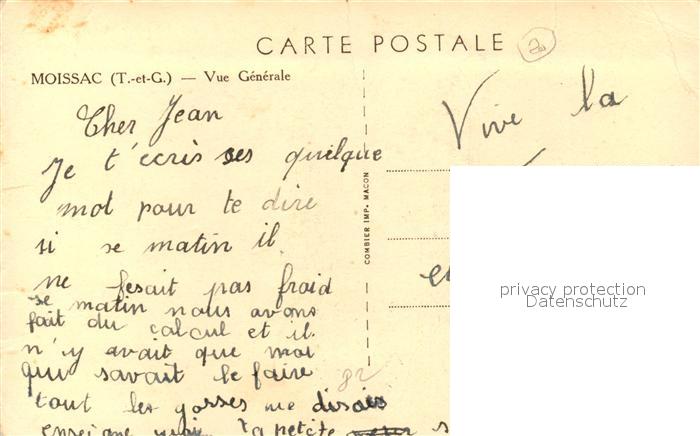 CARTE POSTALE
MOISSAC (T.-et-G.) — Vue Générale
Cher Jean
Je t'écris ses quelque
mot pour te dire
si se matin il
ne fesait pas froid
se matin nous avons
fait du calcul et il
n'y avait que moi
qui savait le faire
tout les gosses me disais
enseigne moi. la petite
COMBIER IMP. MACON
Vive la
82
privacy protection
Datenschutz